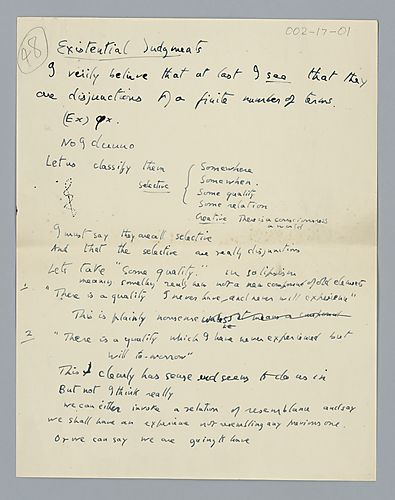 002-17-01
48
Existential Judgments
I verily believe that at last I see that they
are disjunctions of a finite number of terms.
(Ex) φx.
No I dunno
Let us classify them
selective
Somewhere
Somewhen.
Some quality
Some relation
Creative There is a consciousness
a world
I must say they are all selective
And that the selective are really disjunctions
Lets take "Some quality." in solipsism
meaning something really new not a new compound of old elements
1 "There is a quality I never have, and never will experience"
This is plainly nonsense unless it means a compound
2 "There is a quality which I have never experienced but
will to-morrow"
This clearly has sense and seems to do us in
But not I think really
we can either invoke a relation of resemblance and say
we shall have an experience not resembling any previous one.
Or we can say we are going to have